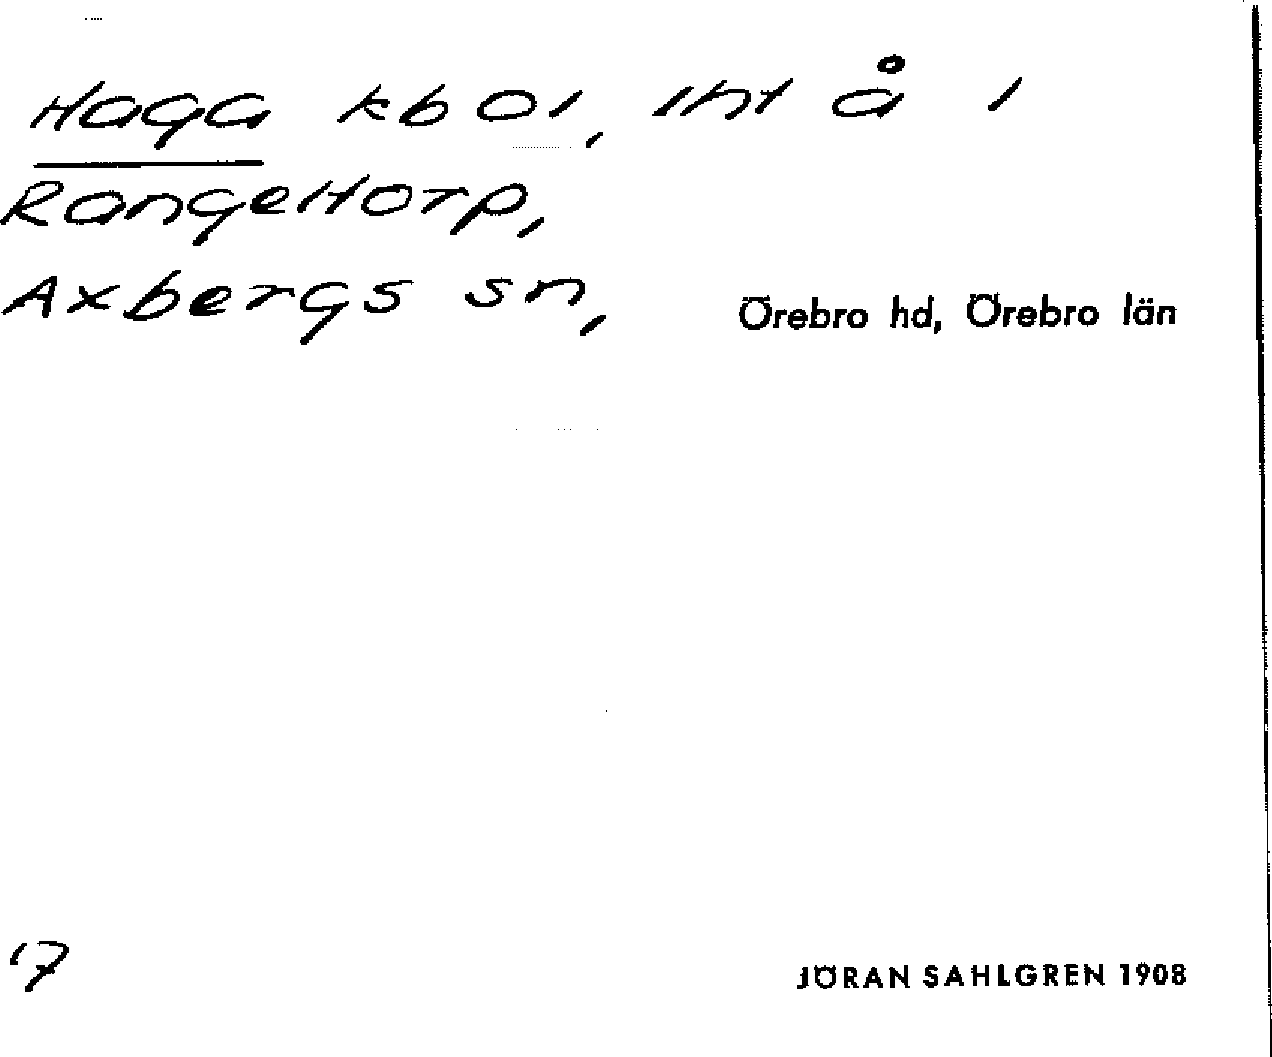 Haga kb 01, lht å 1
Rangeltorp,
Axbergs sn, Örebro hd, Örebro län
'7
JÖRAN SAHLGREN 1908